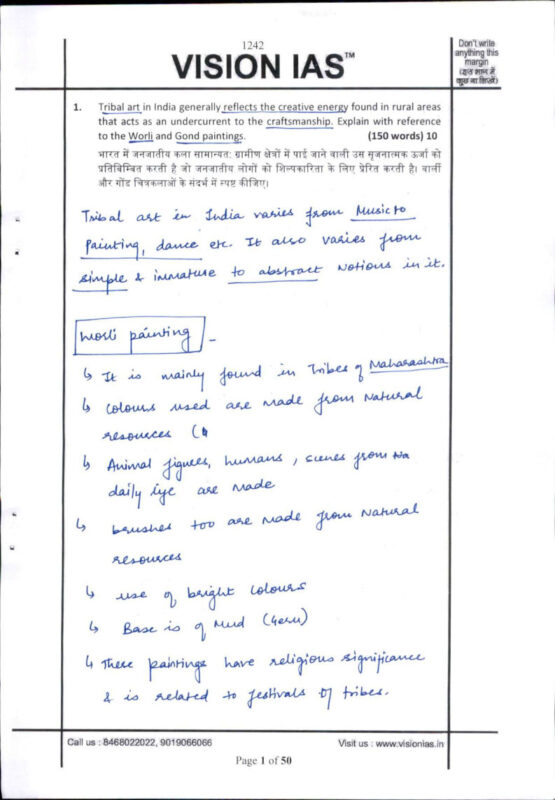 1242
VISION IAS™
Don't write
anything this
margin
(इस भाग में
कुछ ना लिखें)
1. Tribal art in India generally reflects the creative energy found in rural areas
that acts as an undercurrent to the craftsmanship. Explain with reference
to the Worli and Gond paintings. (150 words) 10
भारत में जनजातीय कला सामान्यतः ग्रामीण क्षेत्रों में पाई जाने वाली उस सृजनात्मक ऊर्जा को
प्रतिबिम्बित करती है जो जनजातीय लोगों को शिल्पकारिता के लिए प्रेरित करती है। वार्ली
और गोंड चित्रकलाओं के संदर्भ में स्पष्ट कीजिए।
Tribal art in India varies from Music to
Painting, dance etc. It also varies from
simple & immature to abstract notions in it.
Worli painting -
↳ It is mainly found in Tribes of Maharashtra
↳ colours used are made from Natural
resources (
↳ Animal figures, humans, scenes from
daily life are made
↳ brushes too are made from Natural
resources
↳ use of bright colours
↳ Base is of Mud (Geru)
↳ These paintings have religious significance
& is related to festivals of tribes.
Call us : 8468022022, 9019066066
Visit us : www.visionias.in
Page 1 of 50